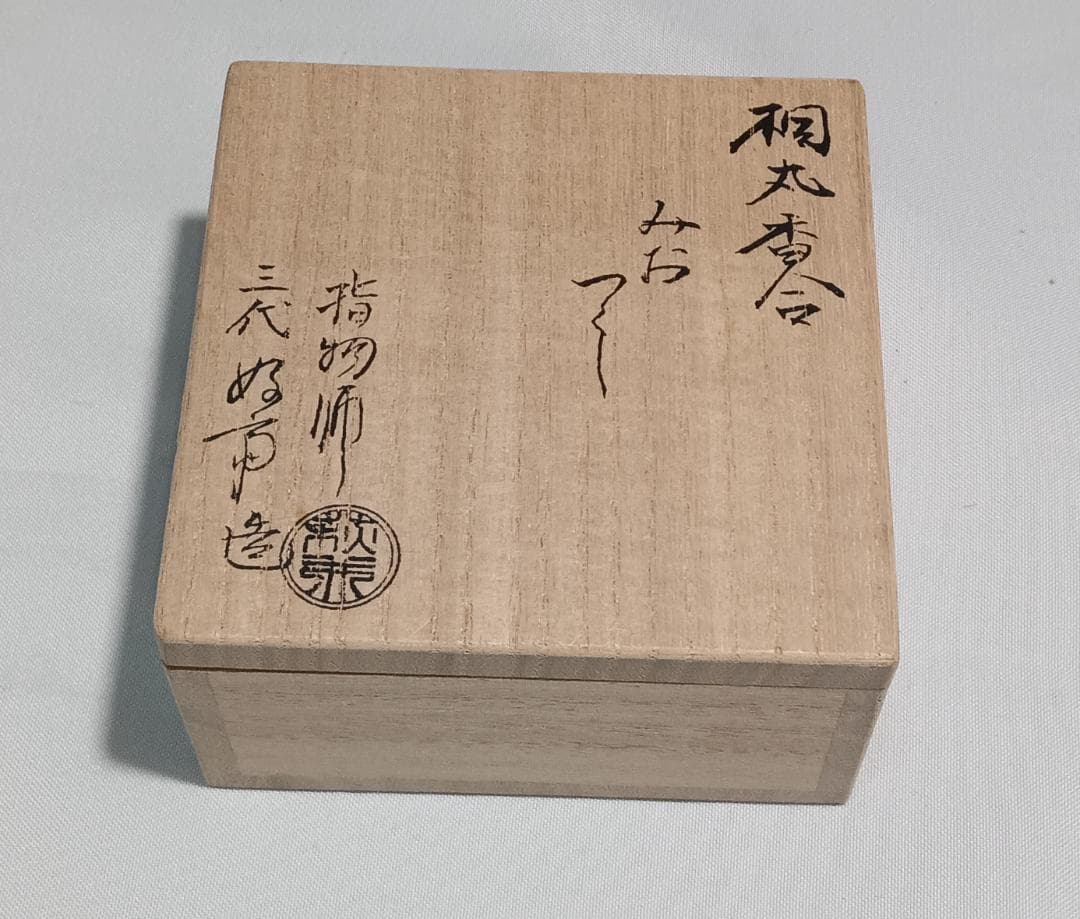 桐丸香合
みお
つくし
指物師
三代好斎造